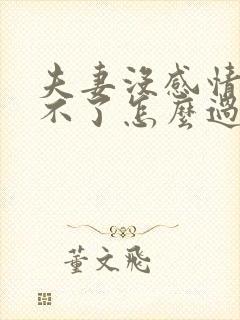 夫妻沒感情
不了怎麼過
董文飛